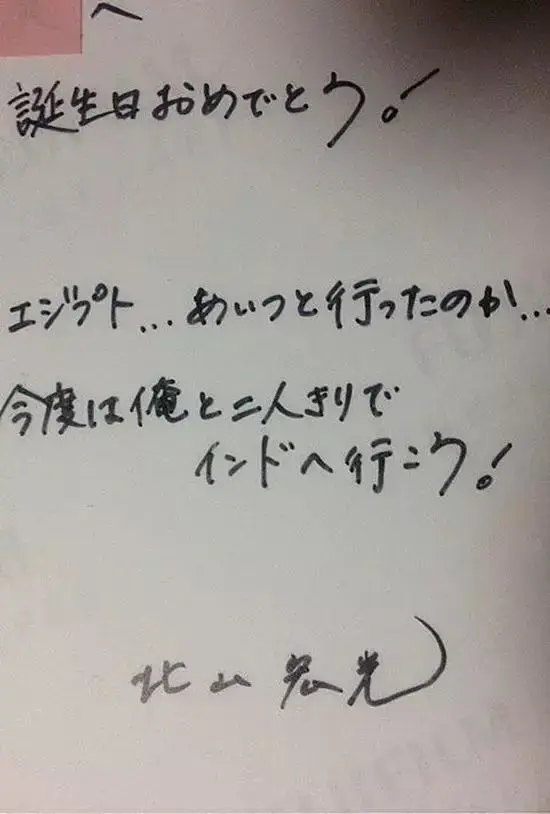 へ
誕生日おめでとう!
エジプト...あいつと行ったのか...
今度は俺と二人きりで
インドへ行こう!
北山宏光